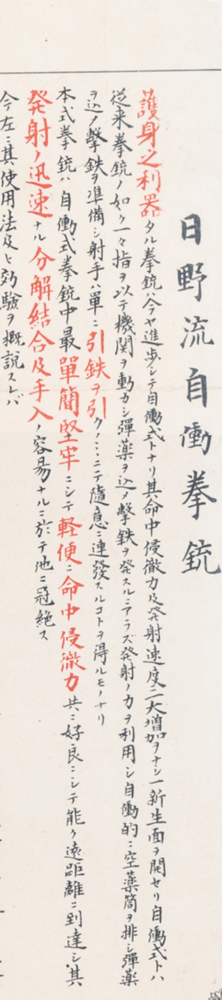 日野流自働拳銃
護身之利器タル拳銃ハ今ヤ進歩シテ自働式トナリ其命中侵徹力及発射速度ニ大増加ヲナシ一新生面ヲ開セリ自働式トハ
従来拳銃ノ如ク一々指ヲ以テ機関ヲ動カシ弾薬ヲ込メ撃鉄ヲ発スルニアラズ発射ノ力ヲ利用シ自働的ニ空薬筒ヲ排シ弾薬
ヲ込メ撃鉄ヲ準備シ射手ハ單ニ引鉄ヲ引クノミニテ隨意ニ連發スルコトヲ得ルモノナリ
本式拳銃ハ自働式拳銃中最單簡堅牢ニシテ軽便ニ命中侵徹力共ニ好良ニシテ能ク遠距離ニ到達シ其
発射ノ迅速ナル分解結合及手入ノ容易ナルニ於テ他ニ冠絶ス
今左ニ其使用法及ヒ効驗ヲ概説スレバ